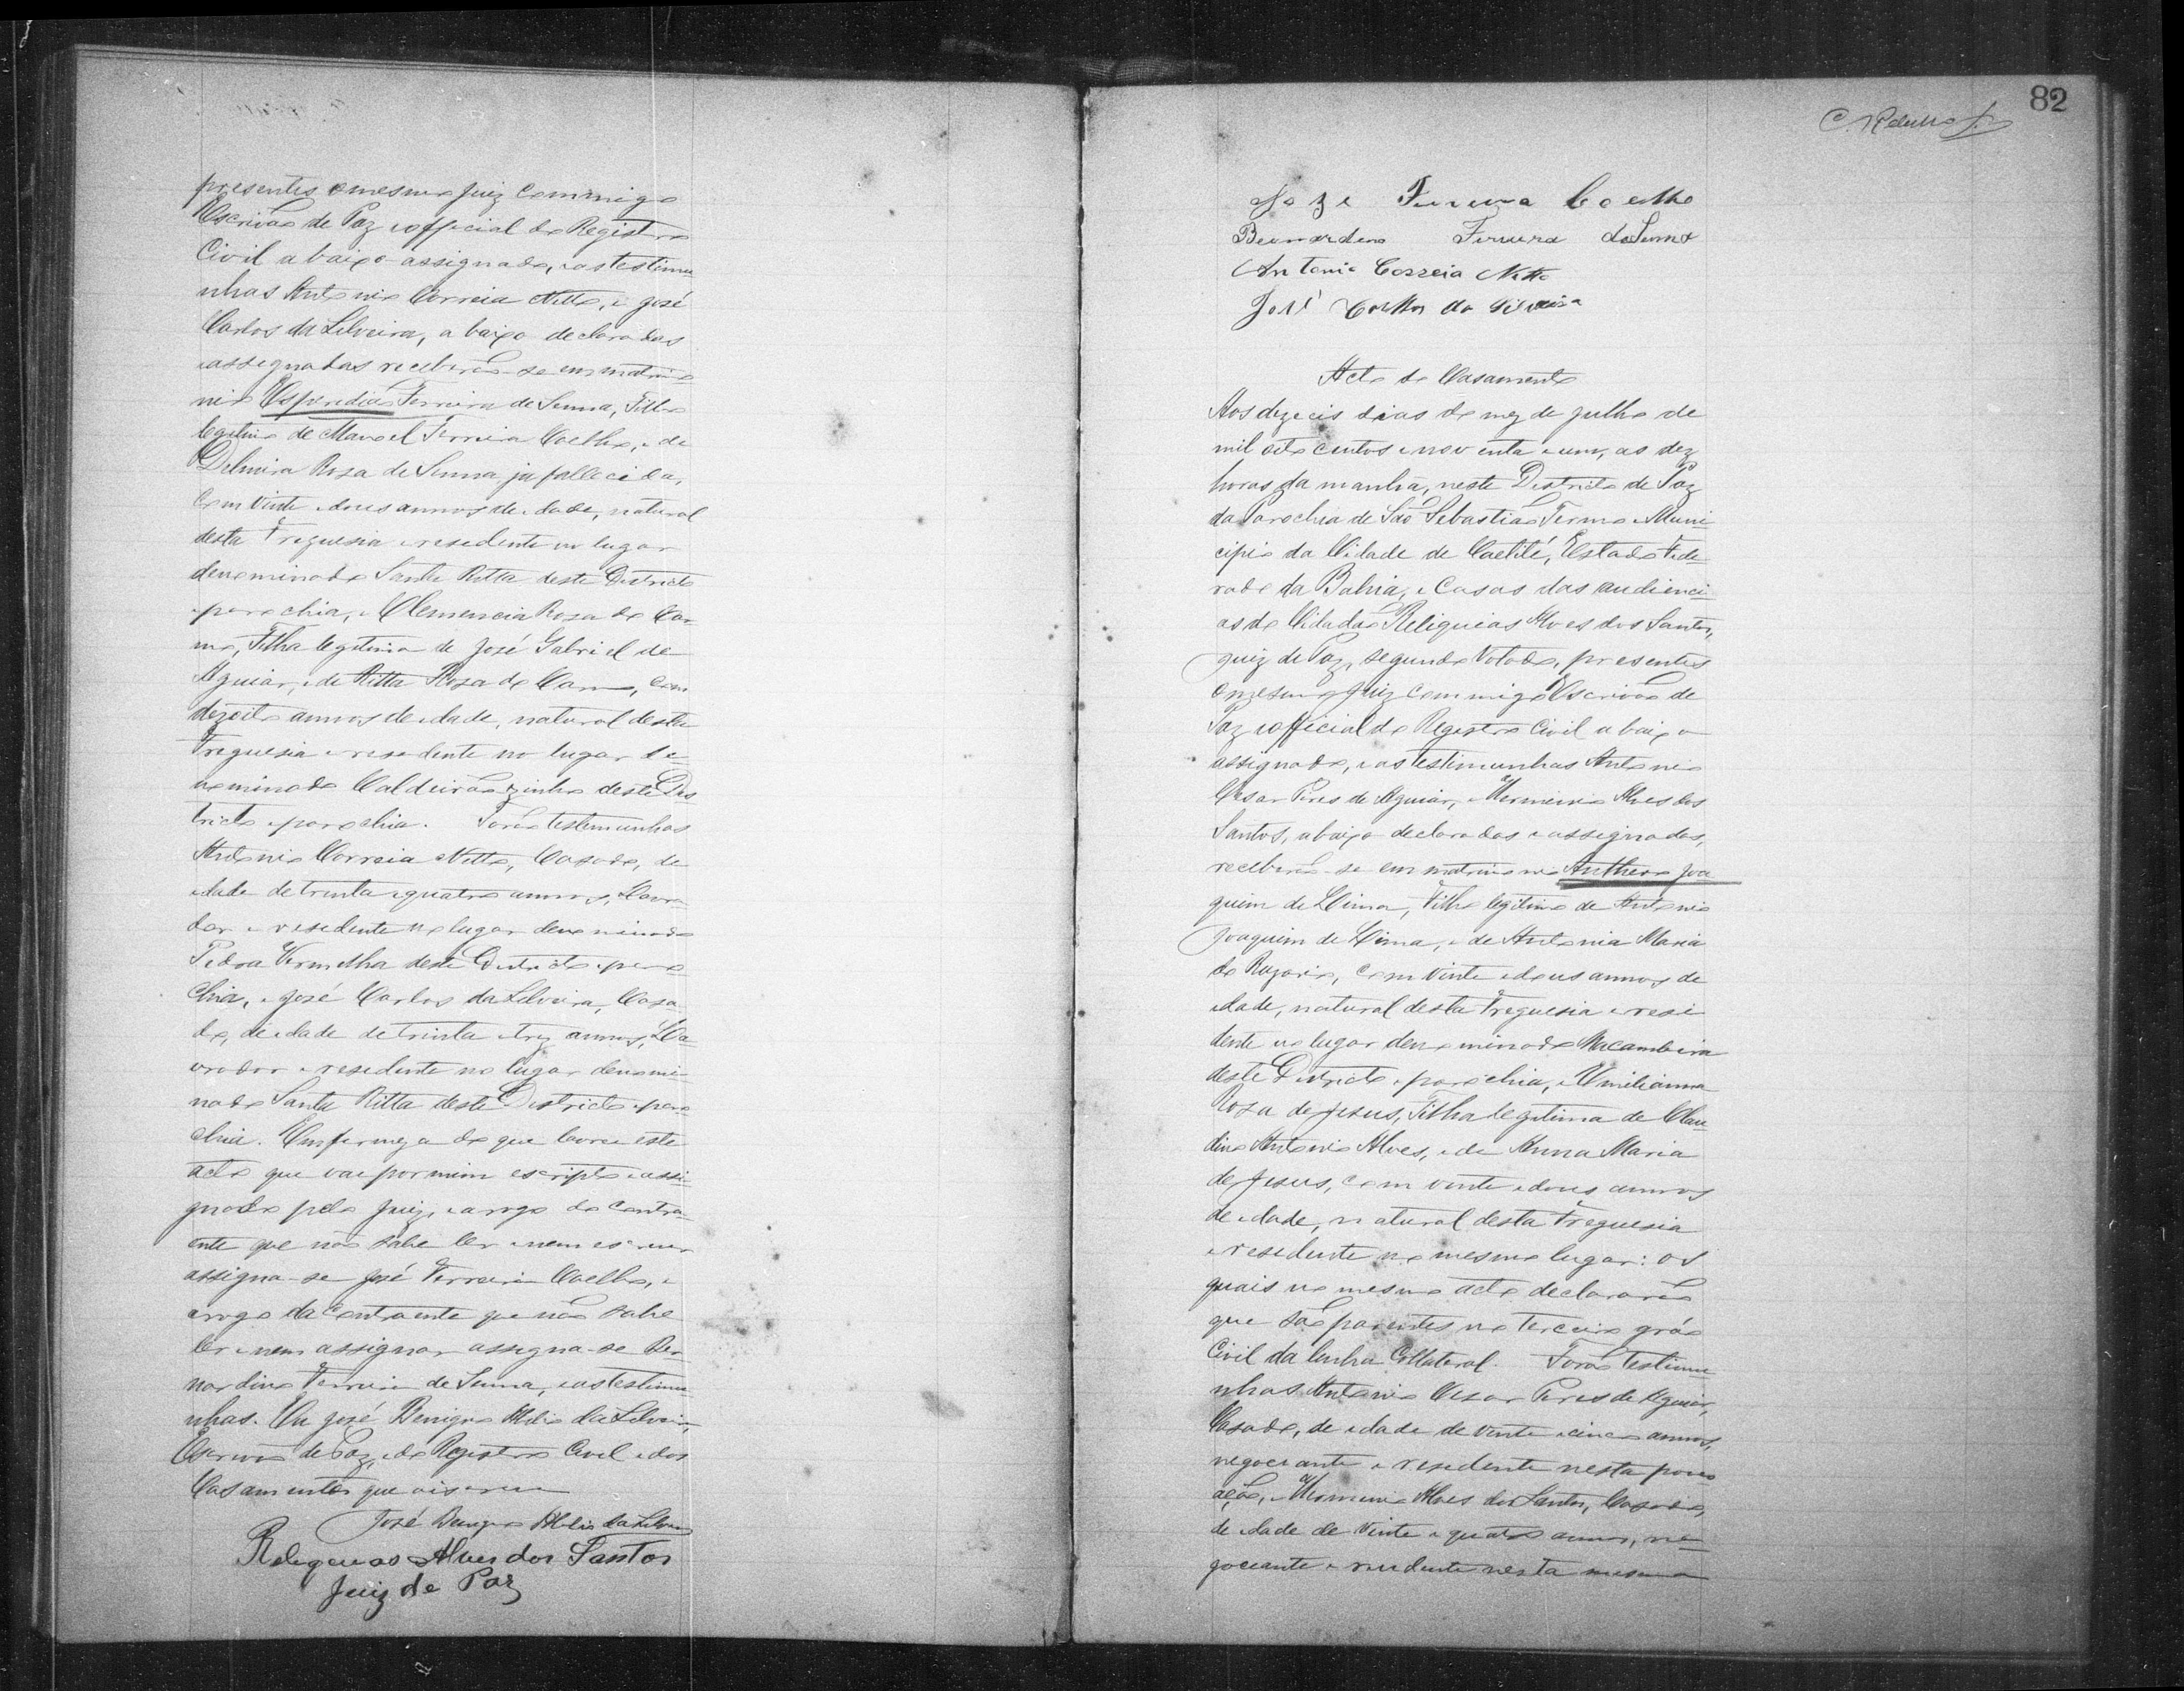 presentes o mesmo Juiz commigo
Escrivão de Paz e official do Registro
Civil abaixo assignado, e as testimu-
nhas Antonio Correia Netto, e José
Carlos da Silveira, abaixo declaradas
e assegnadas receberão-se em matrimo-
nio Esperedião Ferreira de Senna, Filho
legitimo de Manoel Ferreira Coelho, e de
Delmira Roza de Senna, ja fallecida,
com vinte e dous annos de idade, natural
desta Freguesia e residente no lugar
denominado Santa Ritta deste Districto
e parochia, e Clemencia Roza do Car-
mo, Filha legitima de José Gabriel de
Aguiar, e de Ritta Roza do Carmo, com
dezoito annos de idade, natural desta
Freguesia e residente no lugar de-
nominado Caldeirãozinho deste Dis
tricto e parochia. Forão testemunhas
Antonio Correia Netto, Casado, de
idade de trinta e quatro annos, Lavra-
dor e residente no lugar denominado
Pedra Vermelha deste Districto e paro
chia, e José Carlos da Silveira, Casa-
do, de idade de trinta e trez annos, La-
vrador e residente no lugar denomi-
nado Santa Ritta deste Districto e paro
chia. Em firmeza do que lavrei este
acto que vae por mim escripto e assi-
gnado pelo Juiz, e a rogo do contra-
ente que não sabe ler e nem escrever
assigna-se José Ferreira Coelho, e
a rogo da Contraente que não sabe
ler e nem assignar assigna-se Ber-
nardino Ferreira de Senna, e as testimu-
nhas. Eu José Benigno da Silveira,
Escrivão de Paz, e do Registro Civil e dos
Casamentos que o escrevi
José Benigno da Silveira
Religuias Alves dos Santos
Juiz de Paz
82
Joze Ferreira Coelho
Bernardino Ferreira de Senna
Antonio Correia Netto
José Carlos da Silveira
Acto de Casamento
Aos dezeceis dias do mez de Julho de
mil oito centos e noventa e um, as dez
horas da manhã, neste Districto de Paz
da Parochia de São Sebastião Termo e Muni-
cipio da Cidade de Caetité, Estado Fede-
rado da Bahia, e Casas das audienci-
as do Cidadão Religuias Alves dos Santos,
Juiz de Paz, segundo Votado, presentes
o mesmo Juiz commigo Escrivão de
Paz e official do Registro Civil abaixo
assignado, e as testimunhas Antonio
Cesar Pires de Aguiar, e Alves dos
Santos, abaixo declaradas e assegnadas,
receberão-se em matrimonio Anthero Joa
quim de Lima, Filho legitimo de Antonio
Joaquim de Lima, e de Antonia Maria
do Rozario, com vinte e dous annos de
idade, natural desta Freguesia e resi
dente no lugar denominado Macambira
deste Districto e parochia, e Emilianna
Roza de Jesus, Filha legitima de Clau-
dino Antonio Alves, e de Anna Maria
de Jesus, com vinte e dous annos
de idade, natural desta Freguesia
e residente no mesmo lugar: os
quais no mesmo acto declararão
que são parentes no terceiro gráo
Civil da linha Collateral. Forão testimu-
nhas Antonio Cesar Pires de Aguiar,
Casado, de idade de vinte e cinco annos,
negociante e residente nesta povo
ação, e Alves dos Santos, Casado,
de idade de vinte e quatro annos, ne-
gociante e residente nesta mesma